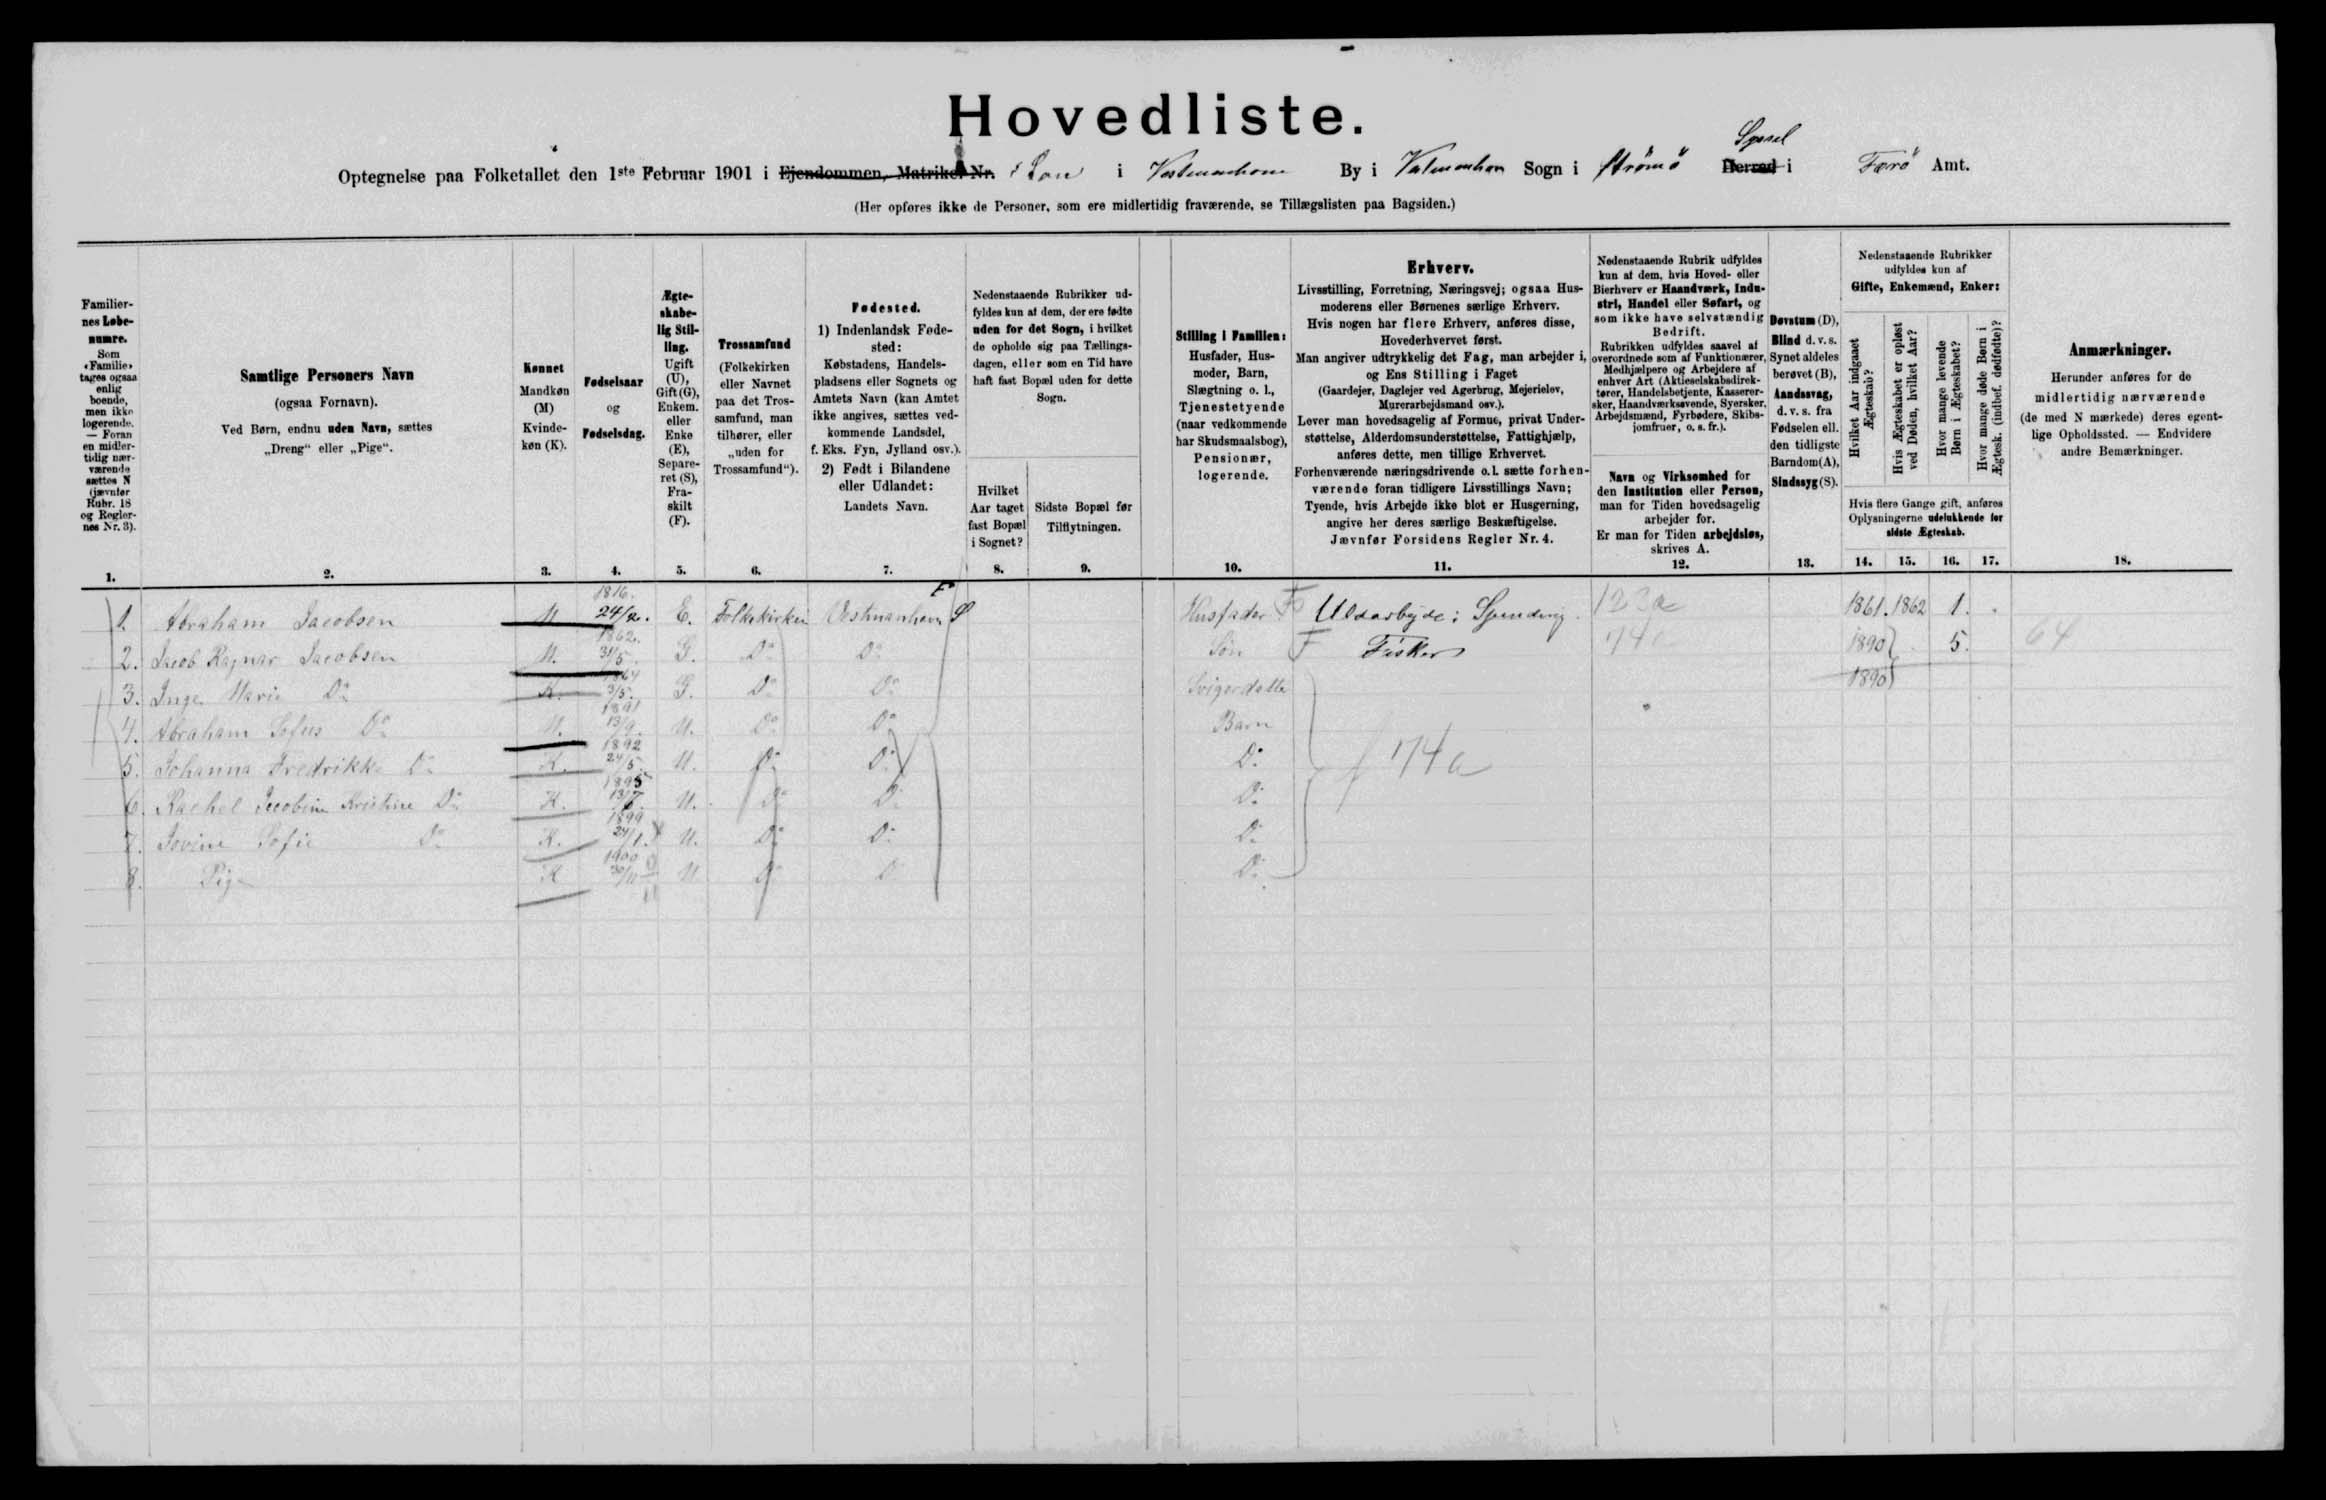 Hovedliste.
Syssel
Optegnelse paa Folketallet den 1ste Februar 1901 i Ejendommen, Matrikel Nr. i Vestmanhavn By i Vestmanhavn Sogn i Strömö Herred i Færö Amt.
(Her opføres ikke de Personer, som ere midlertidig fraværende, se Tillægslisten paa Bagsiden.)
Familiernes Løbenumre.
Som «Familie» tages ogsaa enlig boende, men ikke logerende. — Foran en midlertidig nærværende sættes N (jævnfør Rubr. 18 og Reglernes Nr. 3).
1.
Samtlige Personers Navn
(ogsaa Fornavn).
Ved Børn, endnu uden Navn, sættes
„Dreng“ eller „Pige“.
2.
Kønnet
Mandkøn (M)
Kvindekøn (K).
3.
Fødselsaar
og
Fødselsdag.
4.
Ægteskabelig Stilling.
Ugift (U), Gift (G), Enkem. eller Enke (E), Separeret (S), Fraskilt (F).
5.
Trossamfund
(Folkekirken eller Navnet paa det Trossamfund, man tilhører, eller „uden for Trossamfund“).
6.
Fødested.
1) Indenlandsk Fødested:
Købstadens, Handelspladsens eller Sognets og Amtets Navn (kan Amtet ikke angives, sættes vedkommende Landsdel, f. Eks. Fyn, Jylland osv.).
2) Født i Bilandene eller Udlandet:
Landets Navn.
7.
Nedenstaaende Rubrikker udfyldes kun af dem, der ere fødte uden for det Sogn, i hvilket de opholde sig paa Tællingsdagen, eller som en Tid have haft fast Bopæl uden for dette Sogn.
Hvilket Aar taget fast Bopæl i Sognet?
8.
Sidste Bopæl før Tilflytningen.
9.
Stilling i Familien:
Husfader, Husmoder, Barn, Slægtning o. l., Tjenestetyende (naar vedkommende har Skudsmaalsbog), Pensionær, logerende.
10.
Erhverv.
Livsstilling, Forretning, Næringsvej; ogsaa Husmoderens eller Børnenes særlige Erhverv.
Hvis nogen har flere Erhverv, anføres disse, Hovederhvervet først.
Man angiver udtrykkelig det Fag, man arbejder i, og Ens Stilling i Faget
(Gaardejer, Daglejer ved Agerbrug, Mejerielev, Murerarbejdsmand osv.).
Lever man hovedsagelig af Formue, privat Understøttelse, Alderdomsunderstøttelse, Fattighjælp, anføres dette, men tillige Erhvervet.
Forhenværende næringsdrivende o. l. sætte forhenværende foran tidligere Livsstillings Navn;
Tyende, hvis Arbejde ikke blot er Husgerning, angive her deres særlige Beskæftigelse.
Jævnfør Forsidens Regler Nr. 4.
11.
Nedenstaaende Rubrik udfyldes kun af dem, hvis Hoved- eller Bierhverv er Haandværk, Industri, Handel eller Søfart, og som ikke have selvstændig Bedrift.
Rubrikken udfyldes saavel af overordnede som af Funktionærer, Medhjælpere og Arbejdere af enhver Art (Aktieselskabsdirektører, Handelsbetjente, Kasserersker, Haandværksvende, Syersker, Arbejdsmænd, Fyrbødere, Skibsjomfruer, o. s. fr.).
Navn og Virksomhed for den Institution eller Person, man for Tiden hovedsagelig arbejder for.
Er man for Tiden arbejdsløs, skrives A.
12.
Døvstum (D), Blind d. v. s. Synet aldeles berøvet (B), Aandssvag, d. v. s. fra Fødselen ell. den tidligste Barndom (A), Sindssyg (S).
13.
Nedenstaaende Rubrikker udfyldes kun af
Gifte, Enkemænd, Enker:
Hvilket Aar indgaaet Ægteskab?
Hvis Ægteskabet er opløst ved Døden, hvilket Aar?
Hvor mange levende Børn i Ægteskabet?
Hvor mange døde Børn i Ægtesk. (indbef. dødfødte)?
Hvis flere Gange gift, anføres Oplysningerne udelukkende for sidste Ægteskab.
14. 15. 16. 17.
Anmærkninger.
Herunder anføres for de midlertidig nærværende (de med N mærkede) deres egentlige Opholdssted. — Endvidere andre Bemærkninger.
18.
1. Abraham Jacobsen M. 1816. 24/2. E. Folkekirken Vestmanhavn Husfader F Uldarbejde: Spinding. 123a 1861. 1862 1.
2. Jacob Ragnar Jacobsen M. 1862. 31/5. G. Do Do Søn F Fisker 1890 5. 64
3. Inge Marie Do K. 1864 3/5. G. Do Do Svigerdatter 1890
4. Abraham Sofus Do M. 1891 13/9. U. Do Do Barn
5. Johanna Fredrikke Do K. 1892 24/5 U. Do Do Do 174a
6. Rachel Jacobine Kristine Do K. 1895 U. Do Do Do
7. Jovine Sofie Do K. 1899 24/1. U. Do Do Do
8. Pige K 1900 30/11 U Do Do Do